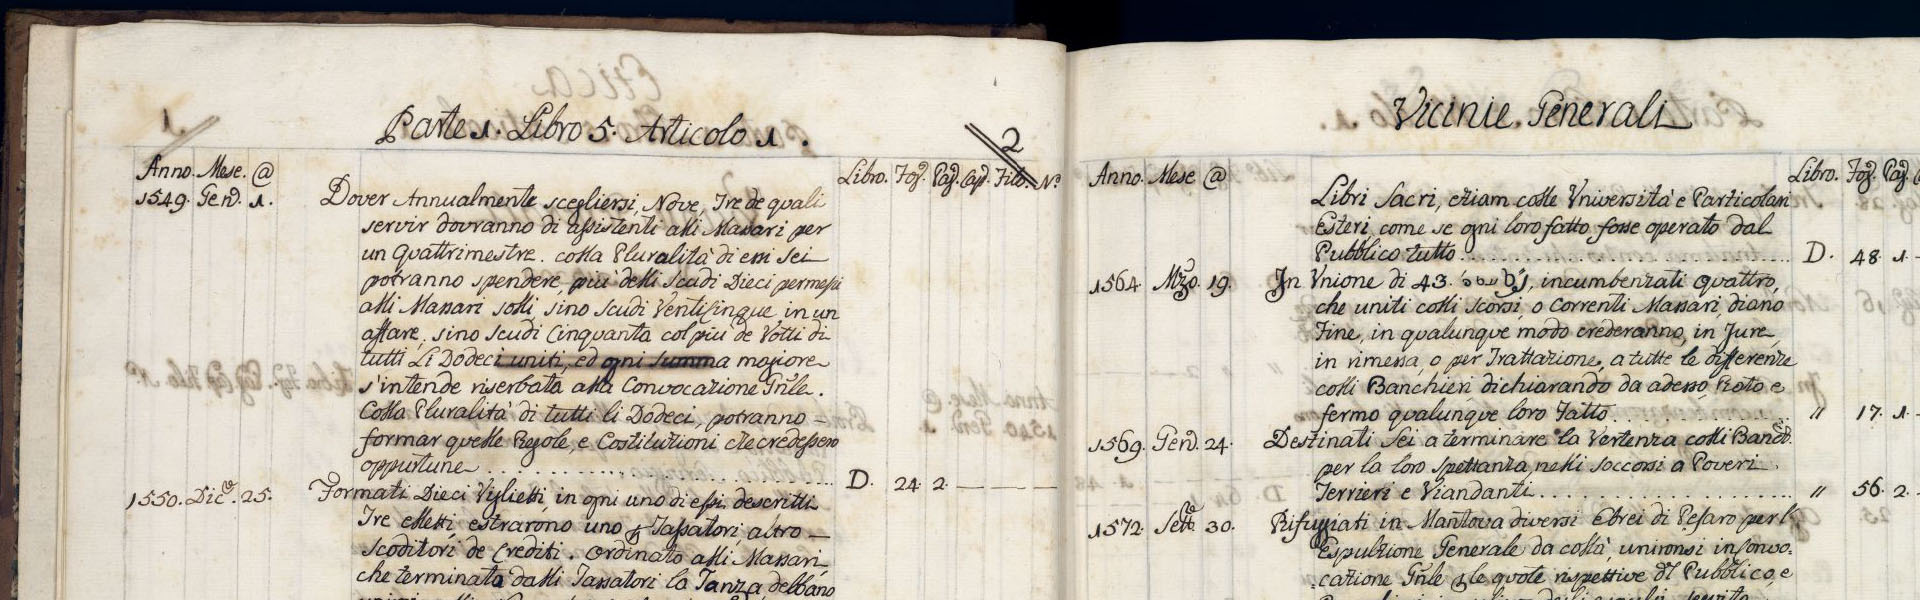 1.
Parte 1. Libro 5. Articolo 1.
2
Anno. Mese. @
Libro. Fog. Pag. Cap. Filo. N.º
1549. Gen. 1. Dover Annualmente scegliersi, Nove, Tre de quali
servir dovranno di assistenti alli Massari per
un Quattrimestre. colla Pluralità di essi sei
potranno spendere più delli Scudi Dieci permessi
alli Massari solli, sino scudi Venticinque in un
affare, sino scudi Cinquanta col più de Votti di
tutti Li Dodeci uniti, ed ogni summa magiore
s'intende riserbata alla Convocazione Grĩle.
Colla Pluralità di tutti li Dodeci, potranno
formar quelle Regole, e Costitutioni che credessero
oppurtune D. 24 2.
1550. Dic.e 25. Formati Dieci Viglietti, in ogni uno di essi descritti
Tre elletti, estrarono uno Tassatori, altro
Scoditori de Crediti. ordinato alli Massari
che terminata dalli Tassatori la Tanza debbano
Vicinie Generali
Anno. Mese @
Libro. Fog. Pag.
Libri Sacri, etiam colle Università e Particolari
Esteri, come se ogni loro fatto fosse operato dal
Pubblico tutto D. 48 1
1564. Mzo. 19. In Unione di 43. incumbenzati quattro,
che uniti colli scorsi, o Correnti Massari, diano
Fine, in qualunque modo crederanno, in Jure,
in rimessa, o per Trattazione, a tutte le differenze
colli Banchieri dichiarando da adesso Rato e
fermo qualunque loro Fatto " 17. 1
1569. Gen. 24. Destinati Sei a terminare la Vertenza colli Banch.
per la loro Spettanza nelli soccorsi a Poveri
Terrieri e Viandanti " 56. 2
1572. Sett. 30. Rifuggiati in Mantova diversi Ebrei di Pesaro per l'
Espulzione Generale da collà, unironsi in Convo:
cazione Grĩle le quote rispettive del Pubblico, e